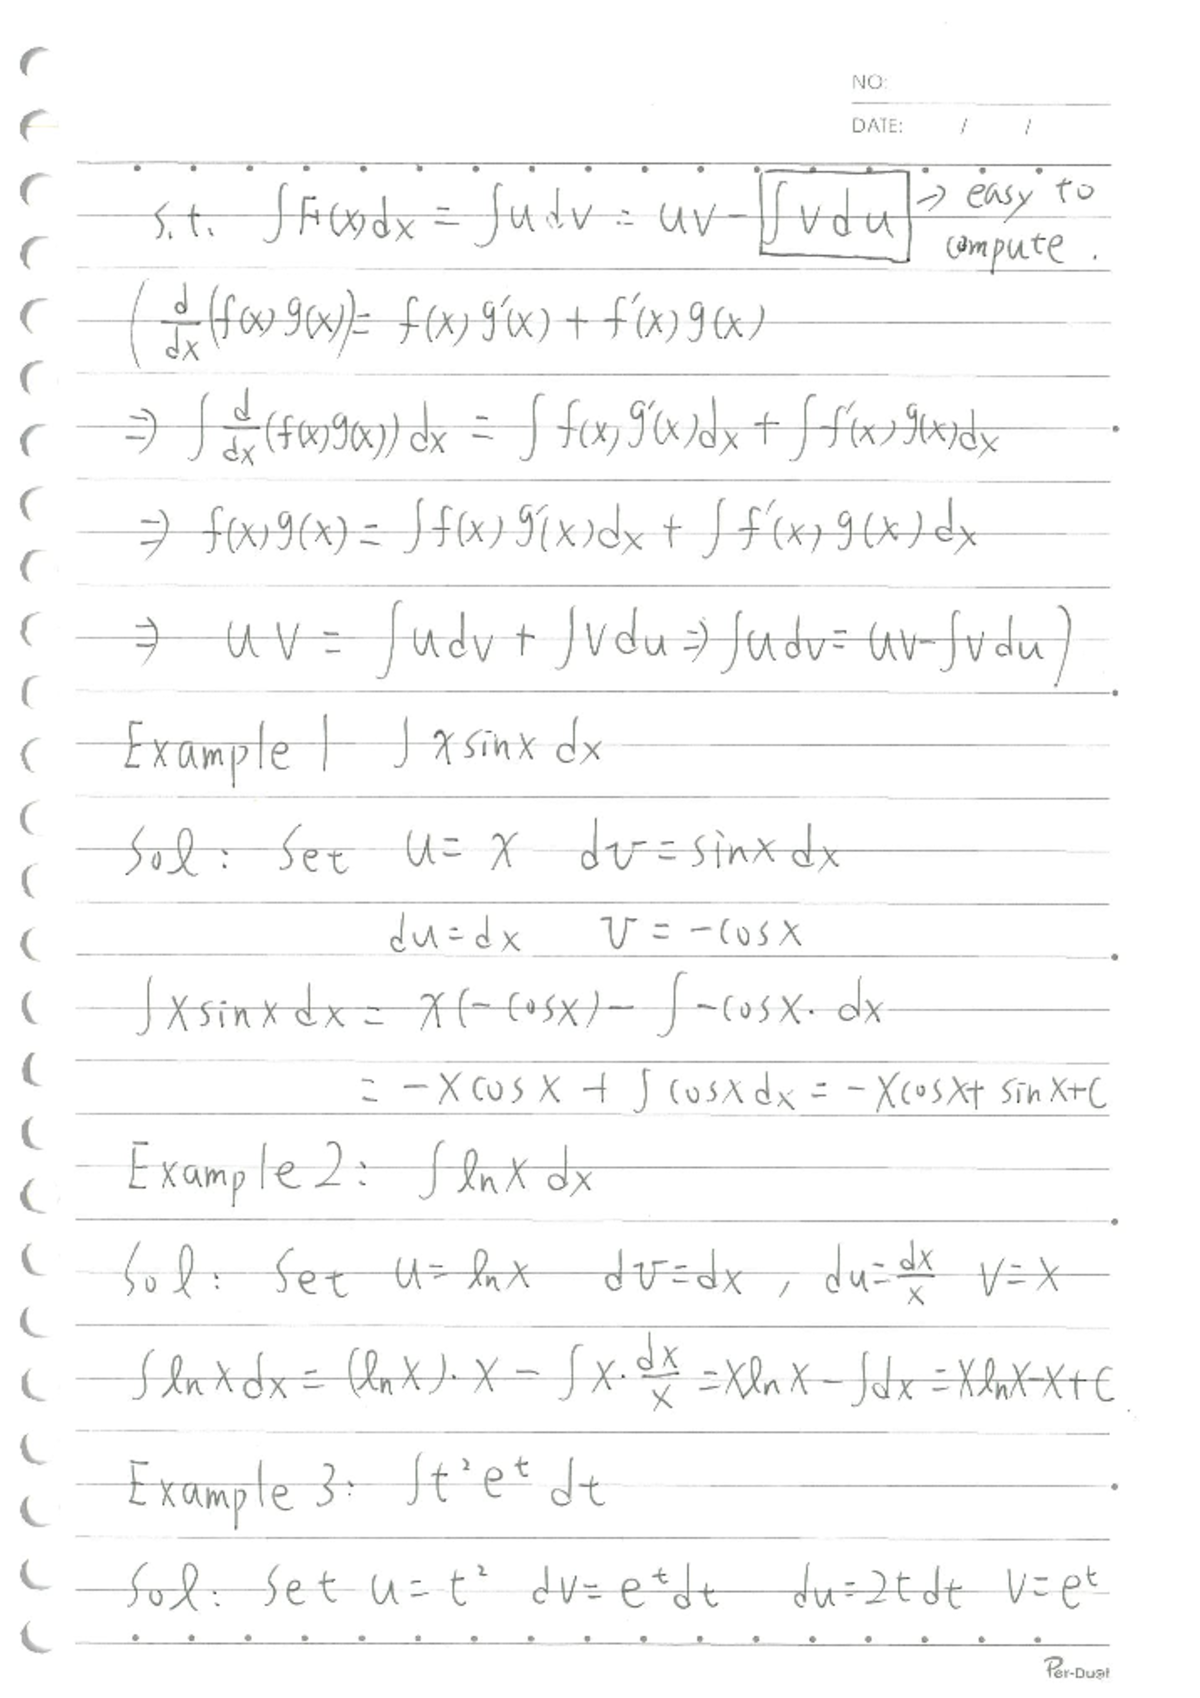 NO:
DATE: / /
s.t. ∫F(x)dx = ∫udv = uv - ∫vdu → easy to
compute.
( d/dx (f(x)g(x)) = f(x)g'(x) + f'(x)g(x)
⇒ ∫ d/dx (f(x)g(x)) dx = ∫ f(x)g'(x)dx + ∫ f'(x)g(x)dx
⇒ f(x)g(x) = ∫f(x)g'(x)dx + ∫f'(x)g(x)dx
⇒ uv = ∫udv + ∫vdu ⇒ ∫udv = uv - ∫vdu )
Example 1 ∫xsinx dx
Sol: Set u = x dv = sinx dx
du = dx v = -cosx
∫xsinx dx = x(-cosx) - ∫-cosx· dx
= -xcosx + ∫cosxdx = -xcosx + sinx + C
Example 2: ∫lnx dx
Sol: Set u = lnx dv = dx , du = dx/x v = x
∫lnxdx = (lnx)·x - ∫x·dx/x = xlnx - ∫dx = xlnx - x + C
Example 3: ∫t²eᵗ dt
Sol: Set u = t² dv = eᵗdt du = 2tdt v = eᵗ
Per-Dust